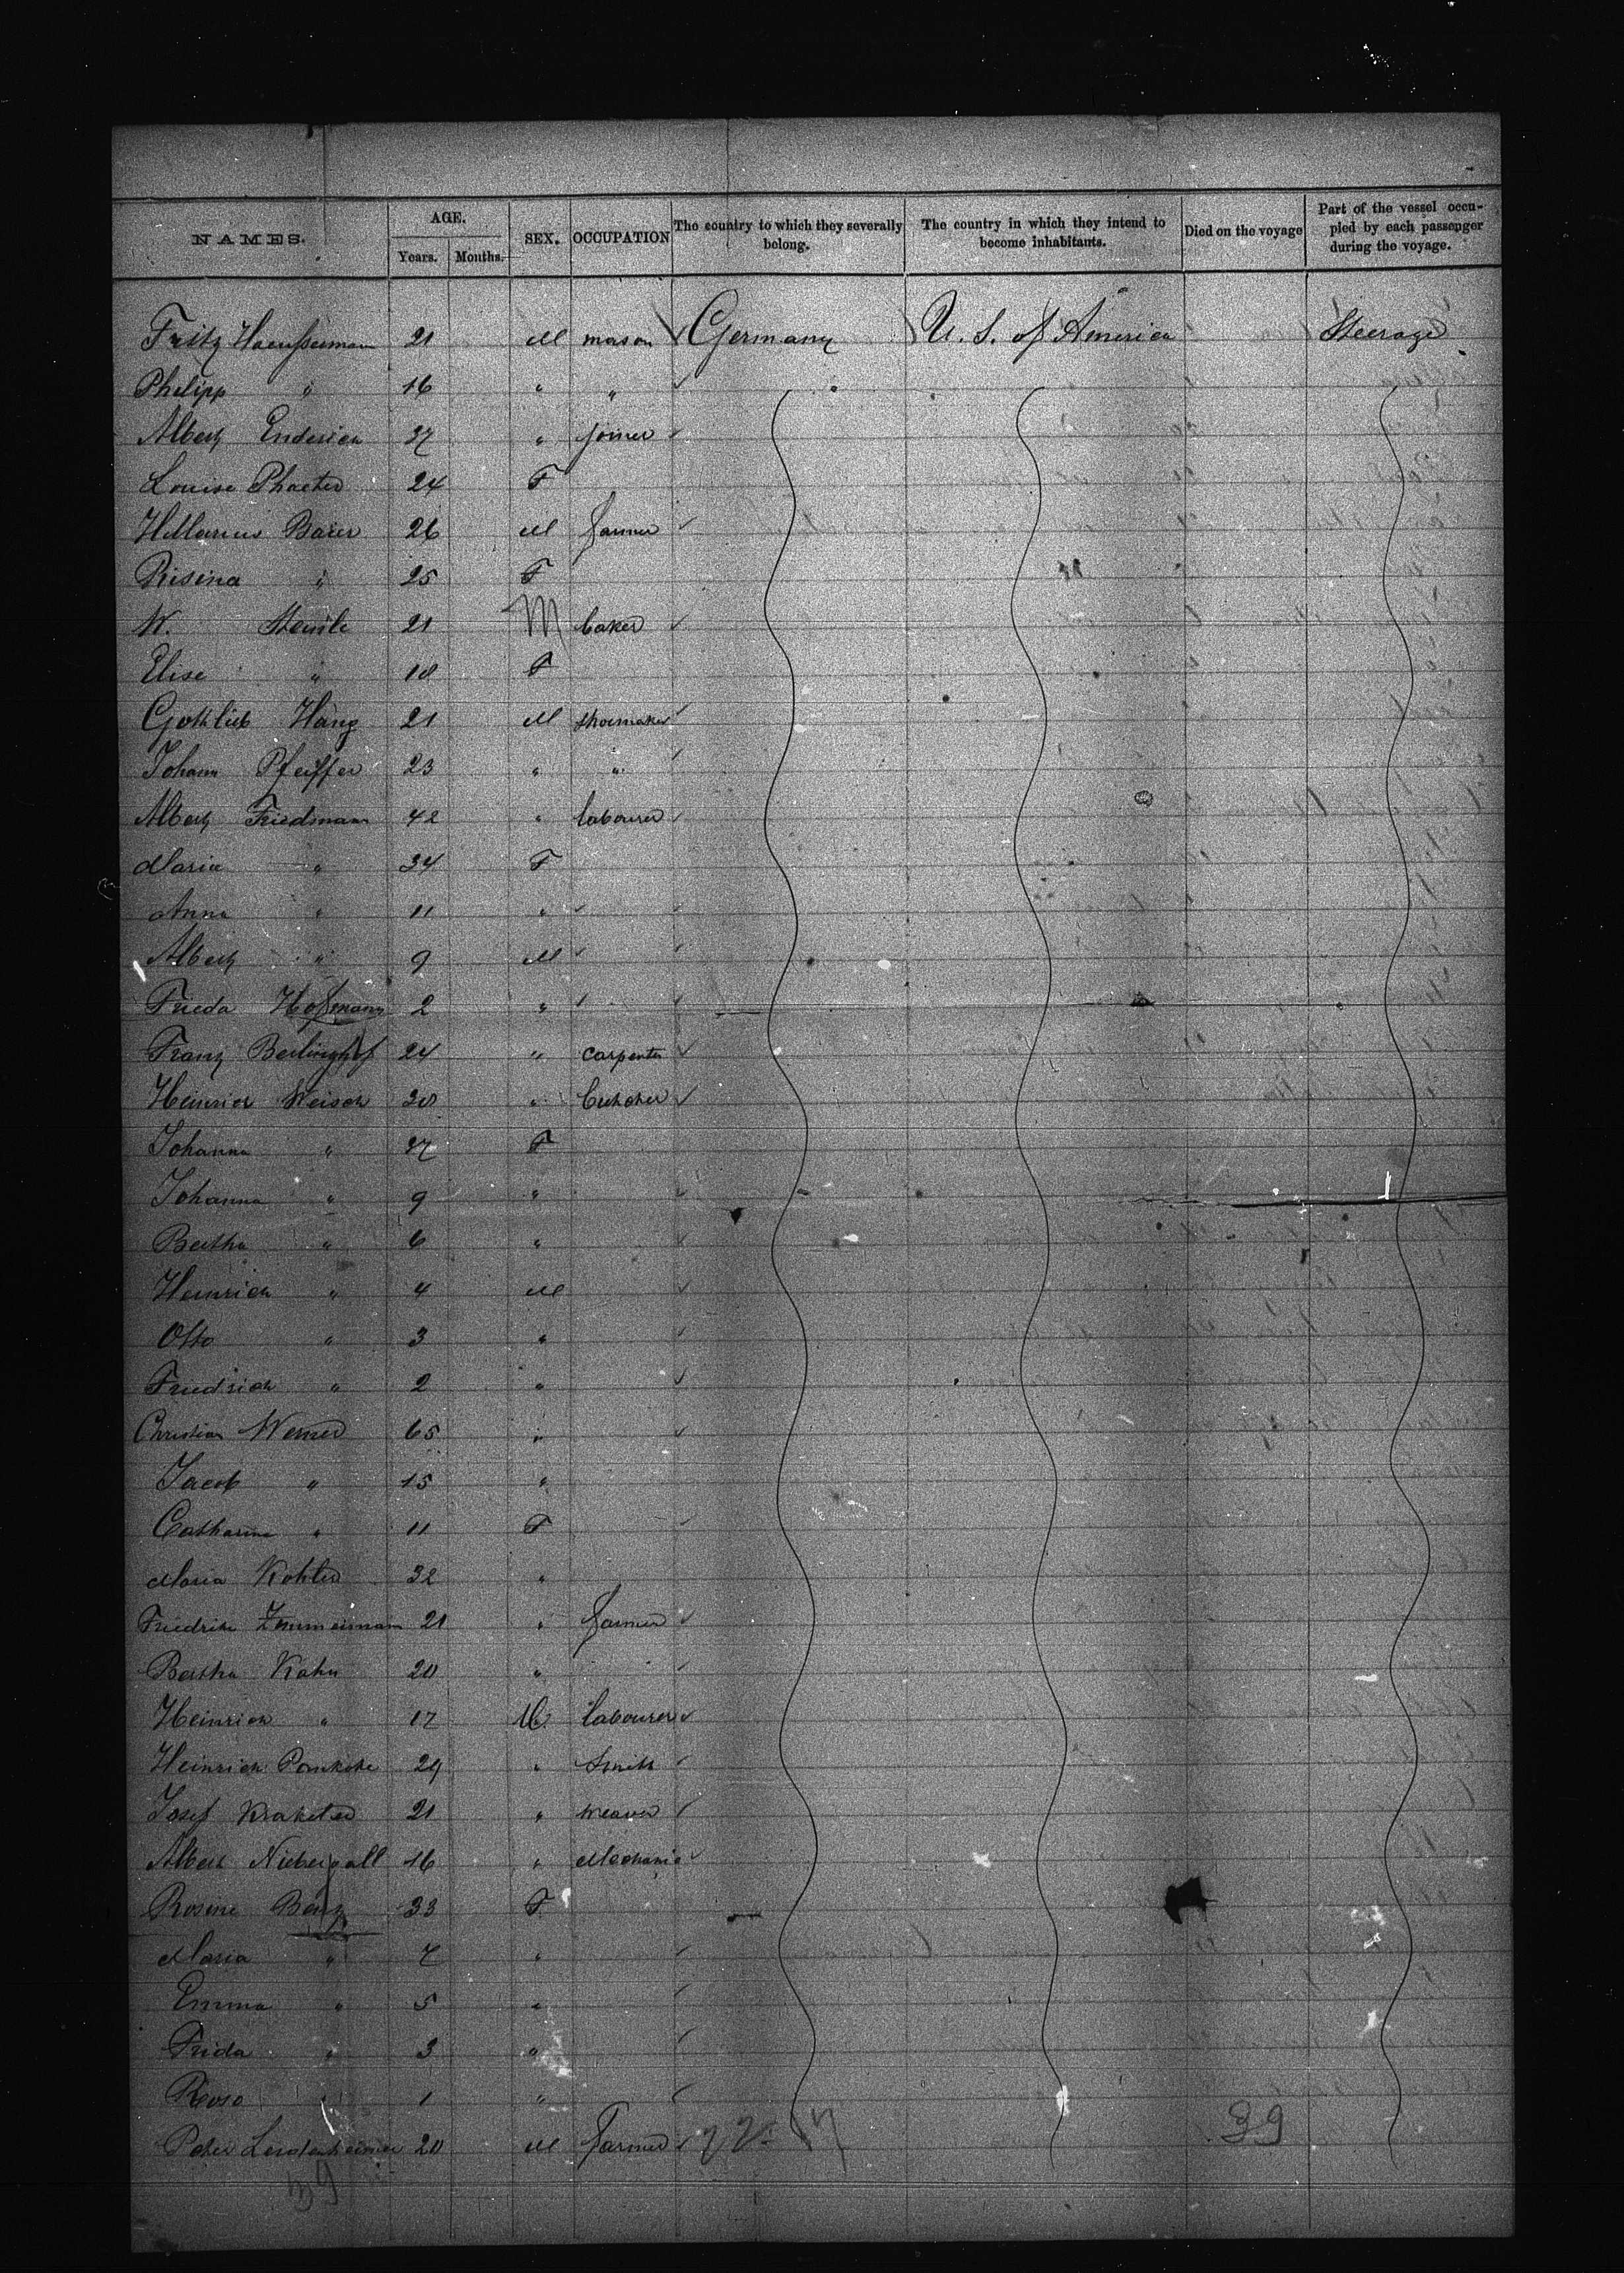 NAMES. AGE. Years. Months. SEX. OCCUPATION The country to which they severally belong. The country in which they intend to become inhabitants. Died on the voyage Part of the vessel occupied by each passenger during the voyage.
Fritz Haeusserman 21 M mason Germany U. S. of America Steerage
Philipp " 16 " " "
Albert 27 " joiner
Louise 24 F
Baier 26 M farmer
Risina " 25 F
W. Steinle 21 M baker
Elise " 18 F
Gottlieb Haug 21 M shoemaker
Johann Pfeiffer 23 " "
Albert Friedmann 42 " labourer
Maria " 34 F
Anna " 11 "
Albert " 9 M
Frieda Hofmann 2 "
Franz Berlinghof 24 " carpenter
Heinrich Weisch " butcher
Johanna " 27 F
Johanna " 9 "
Bertha " 6 "
Heinrich " 4 M
Otto " 3 "
Friedrich " 2 "
Christian Werner 65 "
Jacob " 15 "
Catharina " 11 F
Maria Kohler 32 "
Friedrike Zimmermann 21 " farmer
Bertha Kahn 20 "
Heinrich " 17 M labourer
Heinrich 29 " Smith
Josef 21 " weaver
Albert Niebergall 16 " Mechanic
Rosine Benz 33 F
Maria " 7 "
Emma " 5 "
Frida " 3 "
Rosa " 1 "
Peter 20 M farmer 39
39